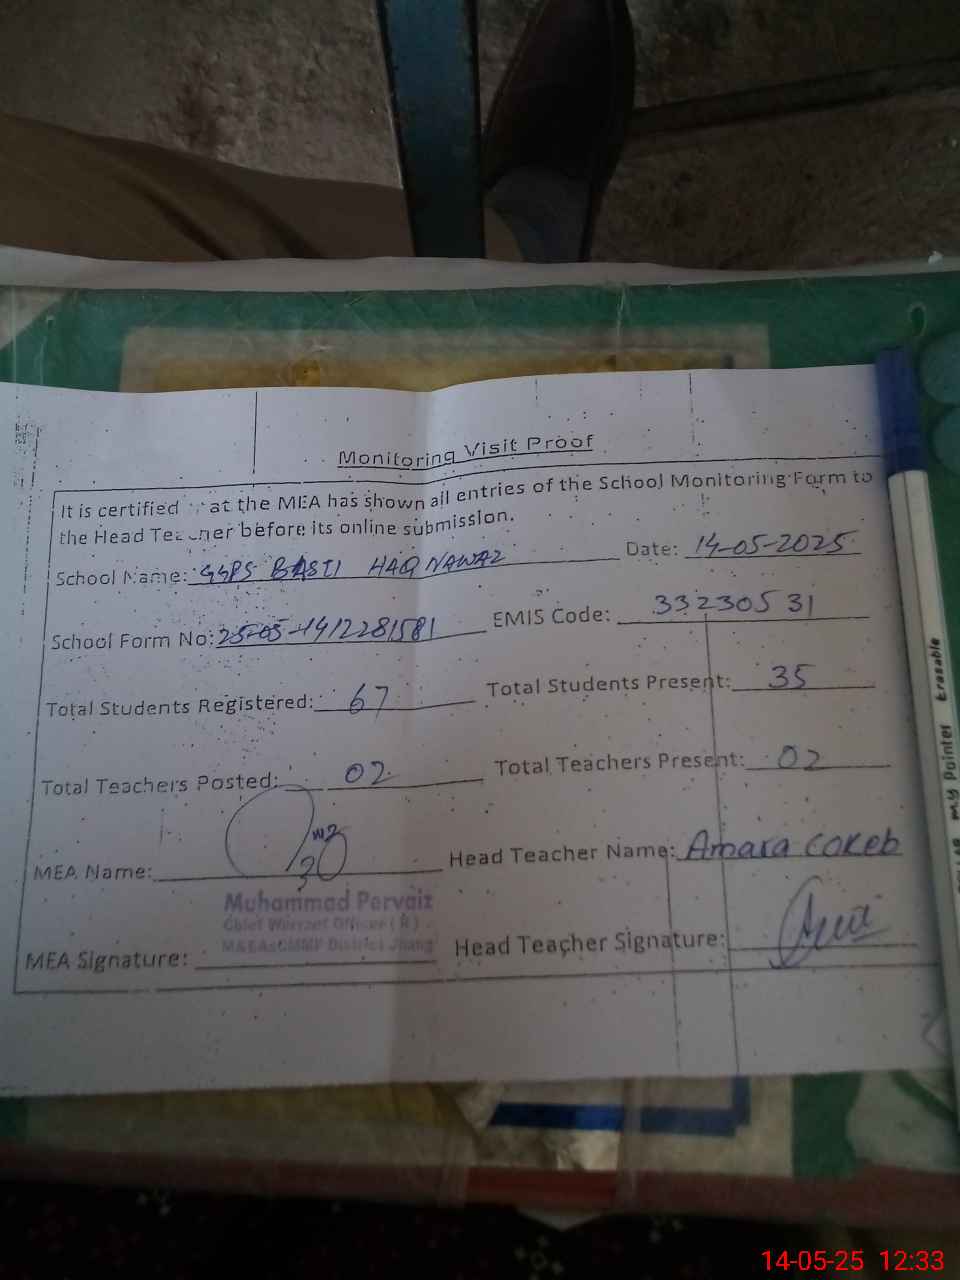 Monitoring Visit Proof
It is certified at the MEA has shown all entries of the School Monitoring Form to
the Head Teacher before its online submission.
School Name: GGPS BASTI HAQ NAWAZ Date: 14-05-2025
School Form No: 25-05-1412281581 EMIS Code: 33230531
Total Students Registered: 67 Total Students Present: 35
Total Teachers Posted: 02 Total Teachers Present: 02
MEA Name: Head Teacher Name: Amara
Muhammad Pervaiz
Chief Warrant Officer (R)
District Jhang
MEA Signature: Head Teacher Signature:
my Pointer Erasable
14-05-25 12:33